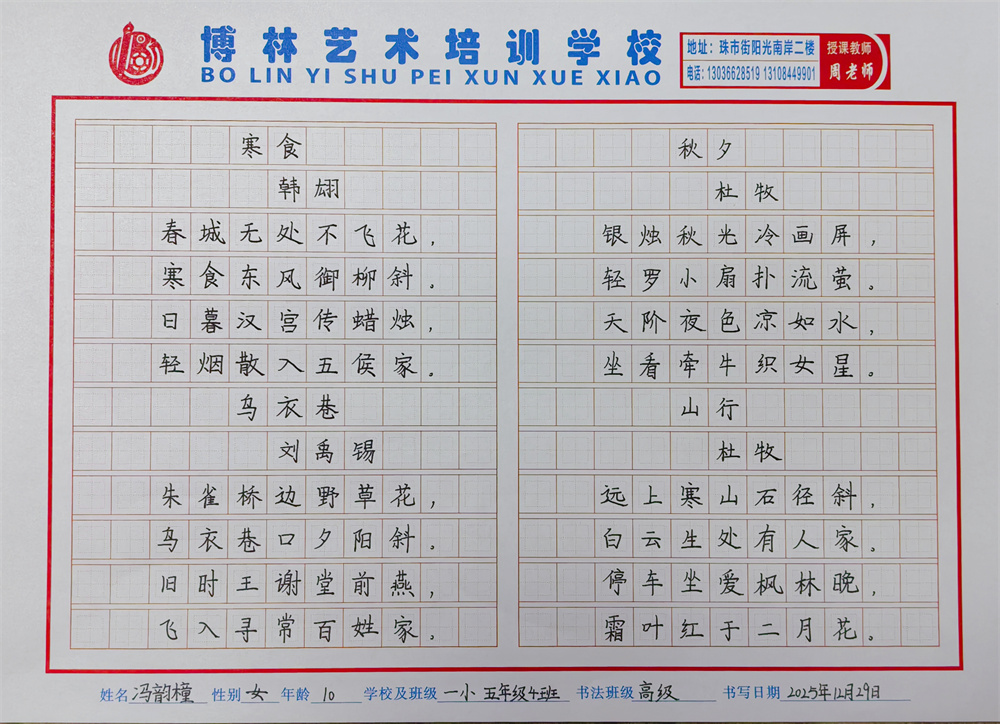 博林艺术培训学校
BO LIN YI SHU PEI XUN XUE XIAO
地址：珠市街阳光南岸二楼
电话：13036628519 13108449901
授课教师
周老师
寒食
韩翃
春城无处不飞花，
寒食东风御柳斜。
日暮汉宫传蜡烛，
轻烟散入五侯家。
乌衣巷
刘禹锡
朱雀桥边野草花，
乌衣巷口夕阳斜。
旧时王谢堂前燕，
飞入寻常百姓家。
秋夕
杜牧
银烛秋光冷画屏，
轻罗小扇扑流萤。
天阶夜色凉如水，
坐看牵牛织女星。
山行
杜牧
远上寒山石径斜，
白云生处有人家。
停车坐爱枫林晚，
霜叶红于二月花。
姓名冯韵橦 性别女 年龄10 学校及班级一小五年级4班 书法班级高级 书写日期2025年12月29日